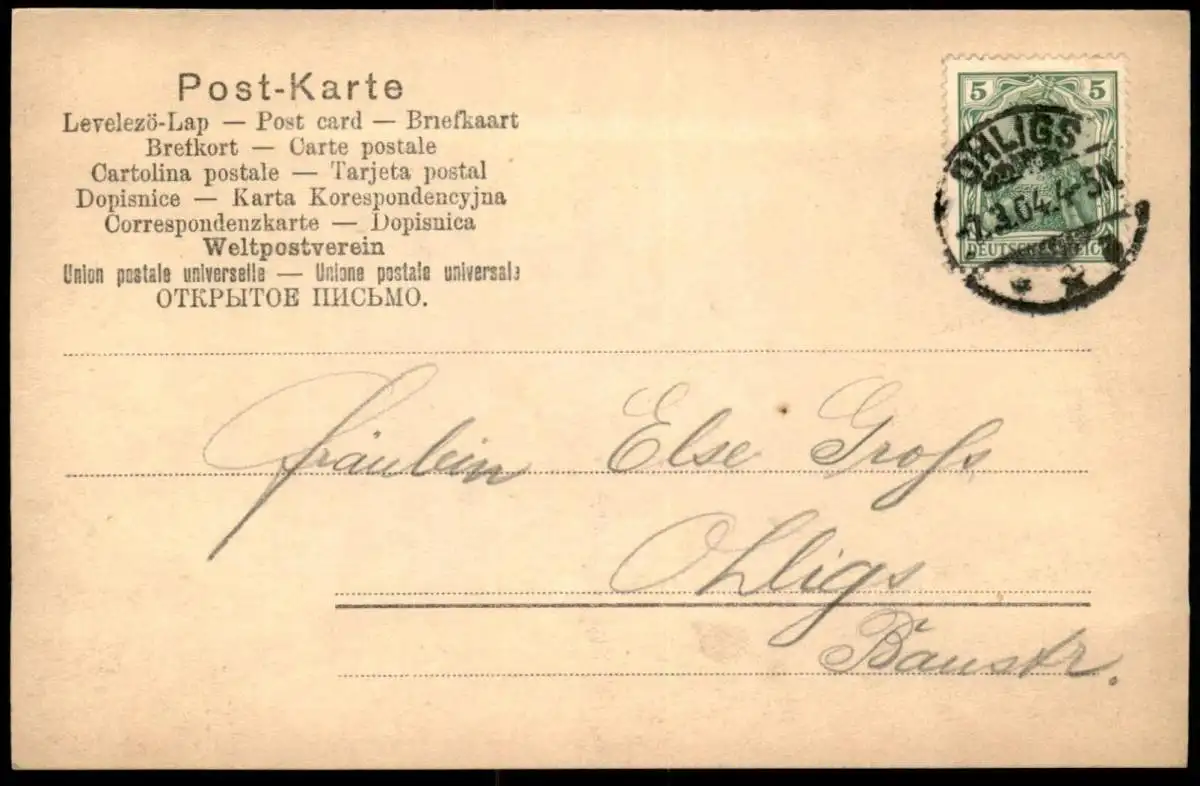 Post-Karte
Levelezö-Lap — Post card — Briefkaart
Brefkort — Carte postale
Cartolina postale — Tarjeta postal
Dopisnice — Karta Korespondencyjna
Correspondenzkarte — Dopisnica
Weltpostverein
Union postale universelle — Unione postale universale
ОТКРЫТОЕ ПИСЬМО.
5 5
DEUTSCHES REICH
OHLIGS
7.3.04.4-5N.
Fräulein Else Groß
Ohligs